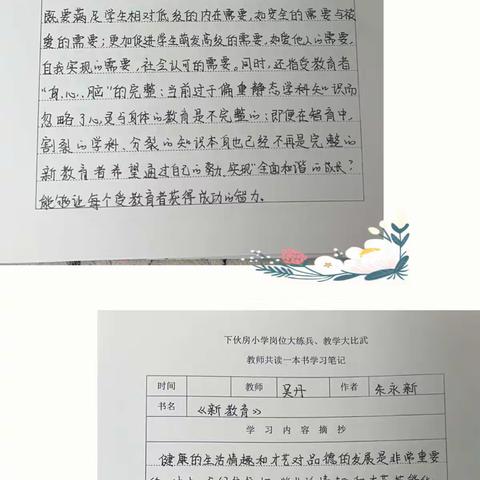 既要满足学生相对低级的内在需要,如安全的需要与被
爱的需要;更加促进学生萌发高级的需要,如爱他人的需要,
自我实现的需要,社会认可的需要。同时,还指受教育者
“身、心、脑”的完整:当前过于偏重静态学科知识而
忽略了心灵与身体的教育是不完整的;即便在智育中,
割裂的学科、分裂的知识本身也已经不再是完整的
新教育者希望通过自己的努力,实现“全面和谐的成长?
能够让每个受教育者获得成功的智力。
下伙房小学岗位大练兵、教学大比武
教师共读一本书学习笔记
时间 教师 吴丹 作者 朱永新
书名 《新教育》
学习内容摘抄
健康的生活情趣和才艺对品德的发展是非常重要